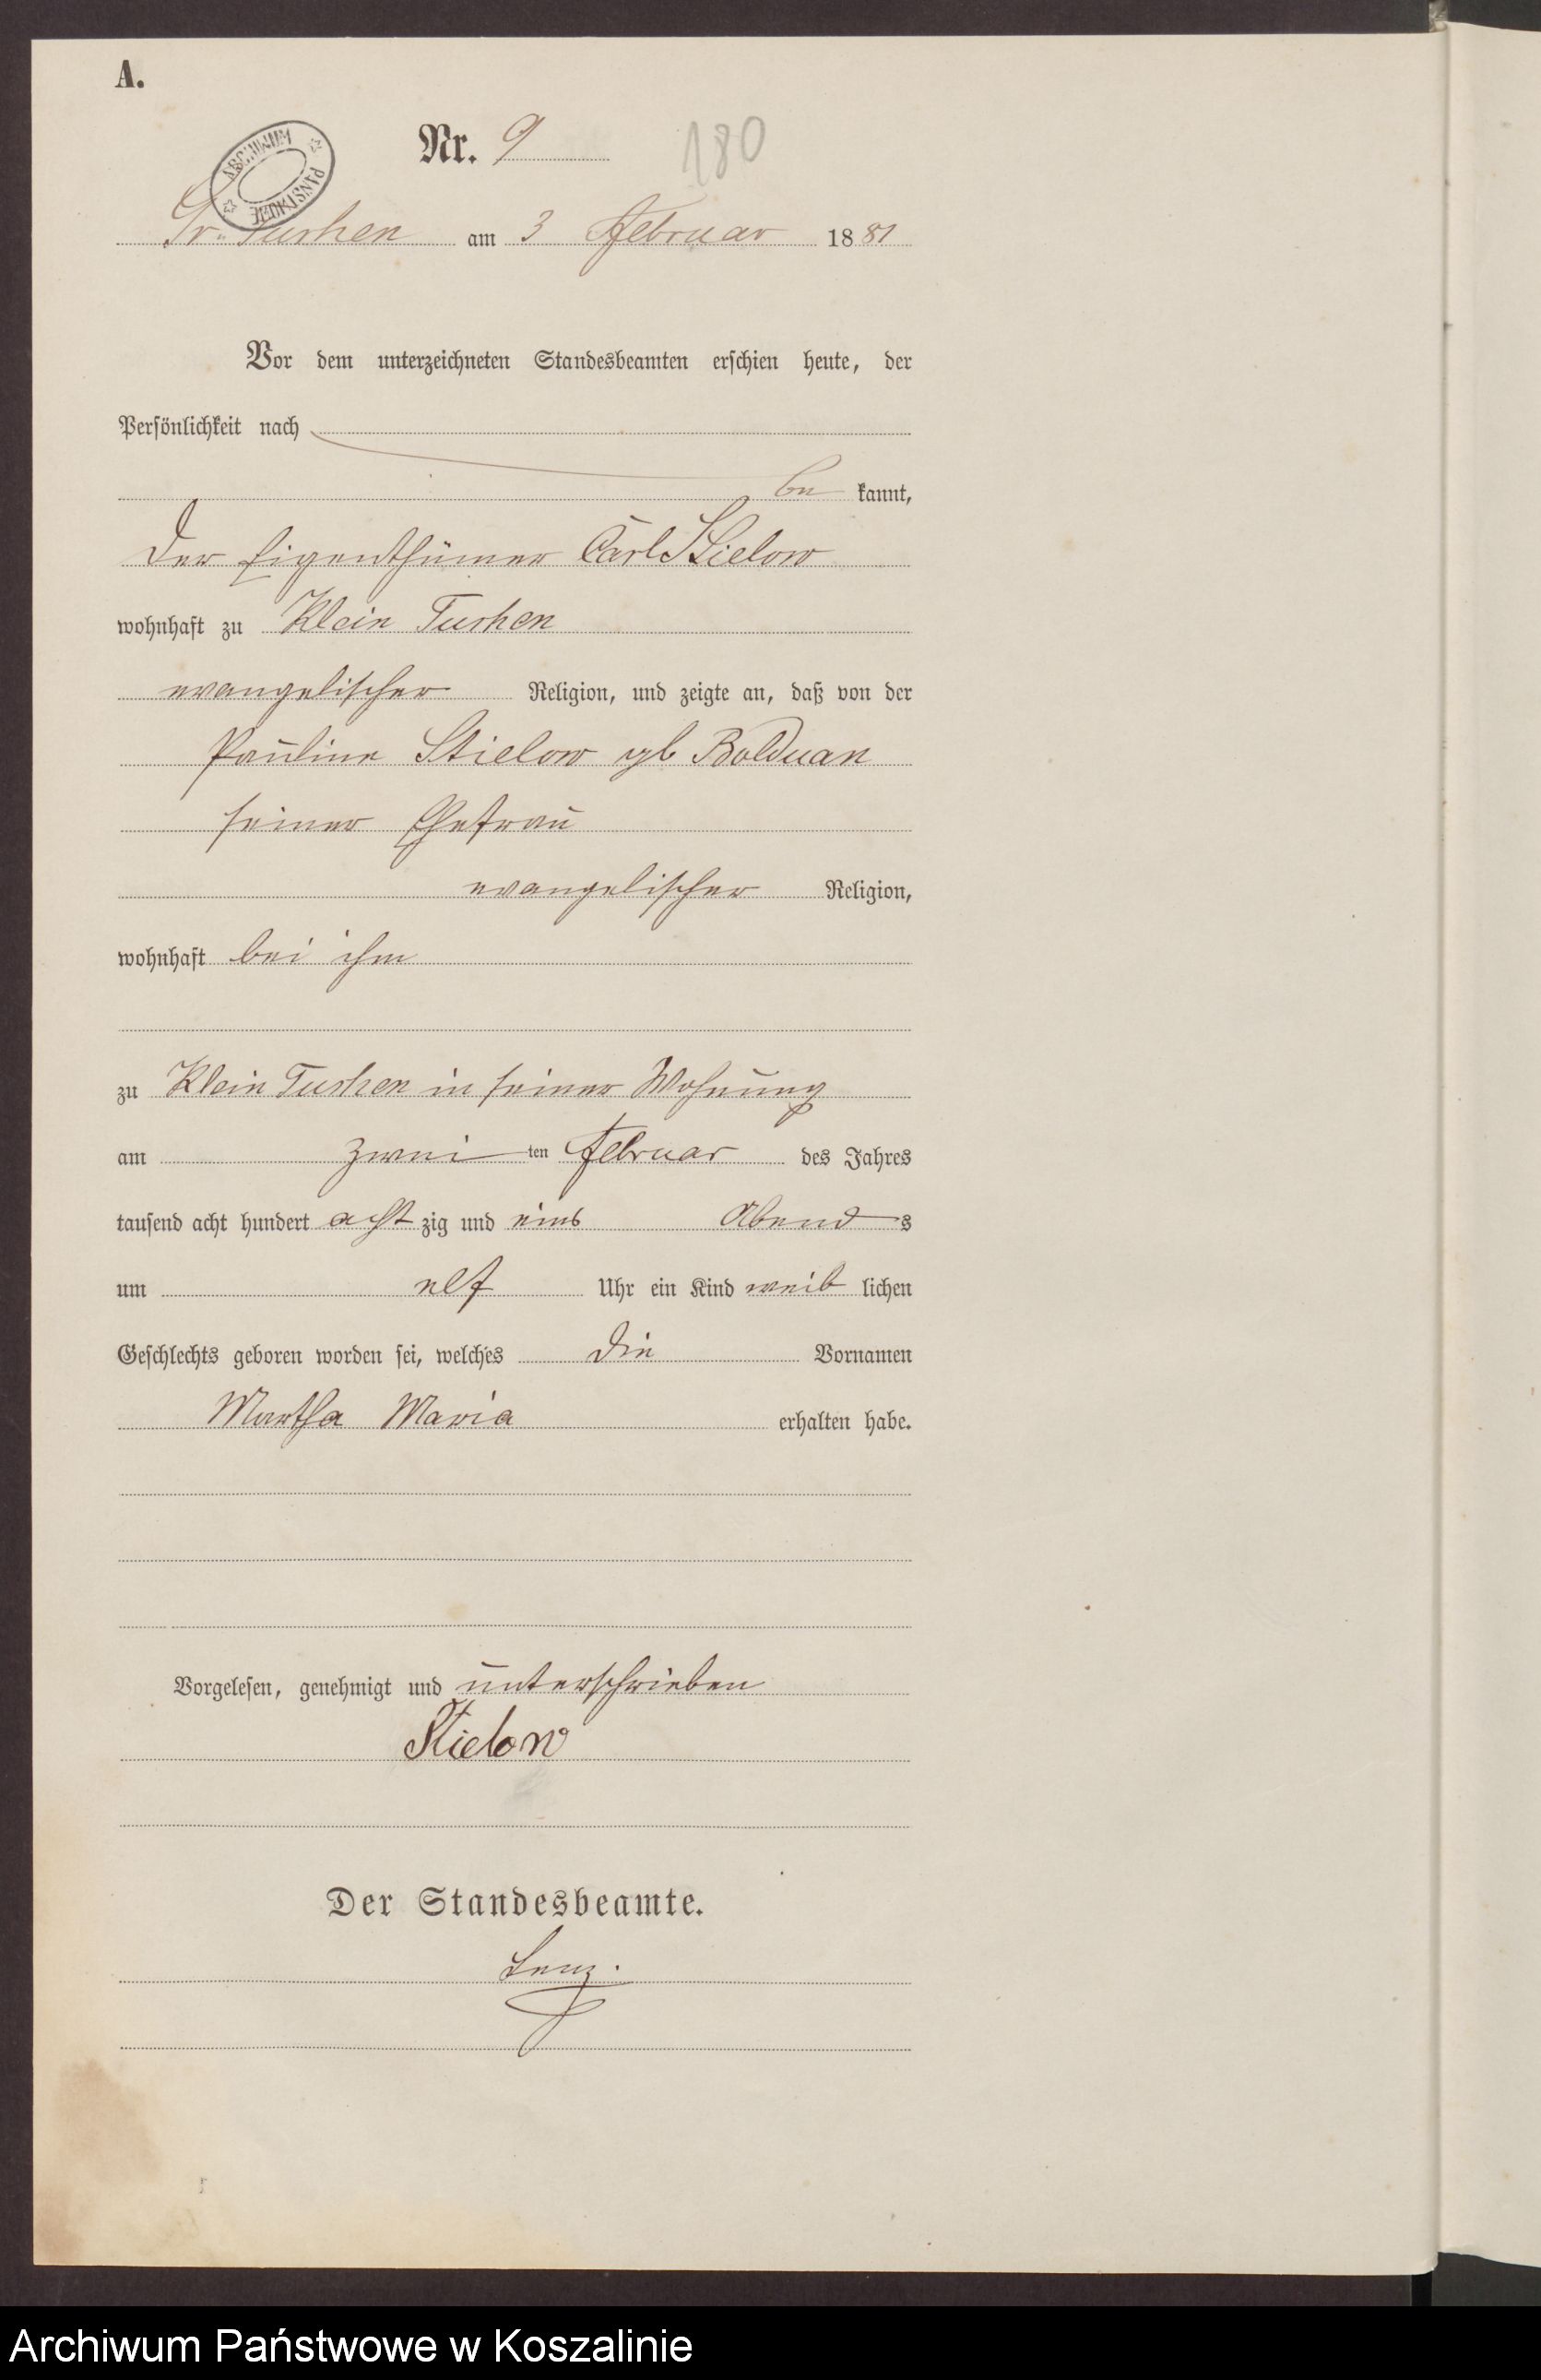 A.
Nr. 9
180
ARCHIWUM PAŃSTWOWE
Gr. Tuchen am 3 Februar 1881
Vor dem unterzeichneten Standesbeamten erschien heute, der
Persönlichkeit nach
be kannt,
der Eigenthümer Carl Stielow
wohnhaft zu Klein Tuchen
evangelischer Religion, und zeigte an, daß von der
Pauline Stielow gb Bolduan
seiner Ehefrau
evangelischer Religion,
wohnhaft bei ihm
zu Klein Tuchen in seiner Wohnung
am zwei ten Februar des Jahres
tausend acht hundert acht zig und eins Abend s
um elf Uhr ein Kind weib lichen
Geschlechts geboren worden sei, welches die Vornamen
Martha Maria erhalten habe.
Vorgelesen, genehmigt und unterschrieben
Stielow
Der Standesbeamte.
Lenz.
Archiwum Państwowe w Koszalinie